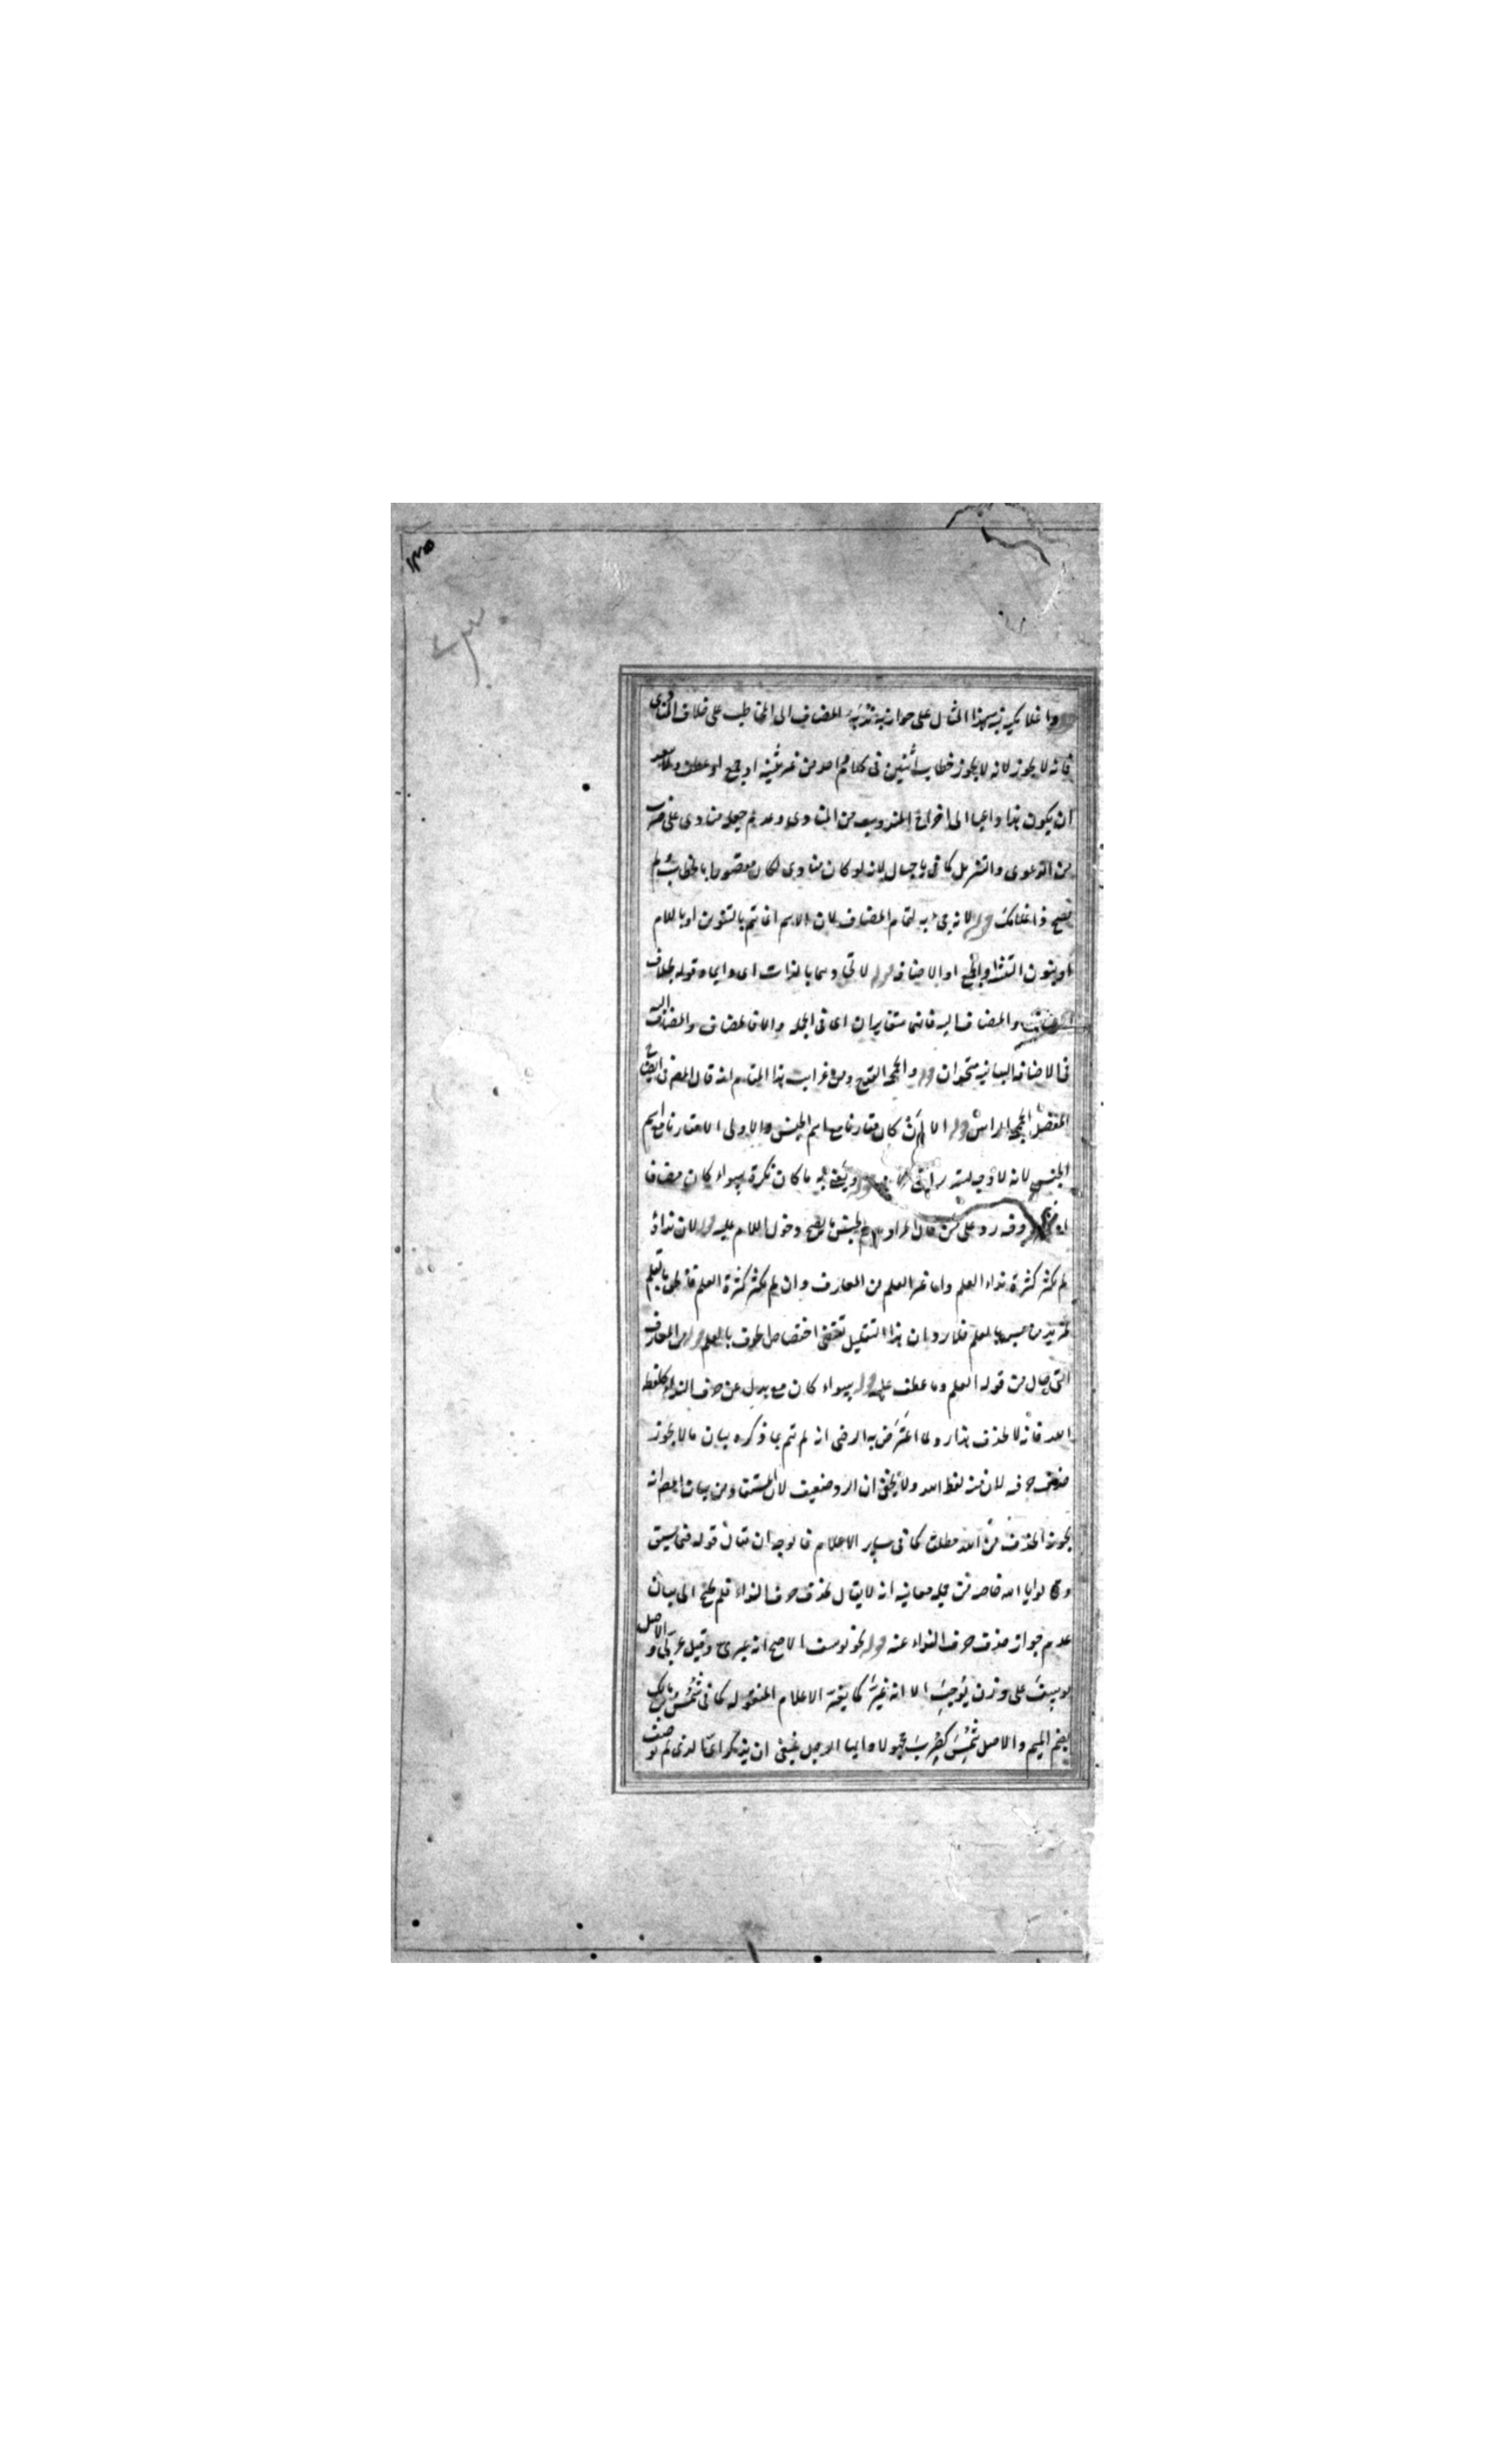 ١٣٥
وا غلامكيه نبه بهذا المثال على جواز ندبة المضاف الى المخاطب على خلاف المنادى
فانه لا يجوز لانه لا يجوز خطاب اثنين فى كلام واحد من غير تثنيه او جمع او عطف
ان يكون هذا داعيا الى اخراج المندوب من المنادى وعدم جعله منادى على ضرب
من الدعوى والتنزيل كما فى يا جبال لانه لو كان منادى لكان مقصودا بالخطاب فلم
يصح وا غلامك قوله لانه جئ به لتمام المضاف لان الاسم انما يتم بالتنوين او باللام
او بنون التثنية والجمع او الاضافة قوله لاتحادهما بالذات اى وايماء قوله بخلاف
المضاف والمضاف اليه فانهما متغايران اى فى الجملة والا فالمضاف والمضاف اليه
فى الاضافة البيانية متحدان قوله والجمجمة القدح ومن غرايب هذا المقام انه قال المصنف فى ايضاح
المفصل الجمجمة الراس قوله الا اذا كان مقارنا مع اسم الجنس والاولى الا مقارنا مع اسم
الجنس لانه لا وجه ويعنى به ما كان نكرة سواء كان مضافا
وقد رد على من قال المراد باسم الجنس ما يصح دخول اللام عليه قوله لان نداؤه
لم يكثر كثرة نداء العلم واما غير العلم من المعارف وان لم يكثر كثرة العلم فالحق بالعلم
لمزيد مناسبة بالعلم فلا يرد ان هذا التعليل يقتضى اختصاص الحذف بالعلم قوله من المعارف
التى حال من قوله العلم وما عطف عليه قوله سواء كان مع بدل عن حرف النداء كلفظ
الله فانه لا يحذف هذا رد لما اعترض به الرضى انه لم يتم بما ذكره بيان ما لا يجوز
حذف حرفه لان منه لفظ الله ولا يخفى ان الرد ضعيف لان المستفاد من بيان المص انه
يجوز الحذف من الله مطلقا كما فى ساير الاعلام فالوجه ان يقال قوله فيما سبق
وقالوا يا الله خاصة من جملة معانيه انه لا يقال بحذف حرف النداء فلم يحتج الى بيان
عدم جواز حذف حرف النداء عنه قوله نحو يوسف الاصح انه عبرى وقيل عربى والاصل
يوسف على وزن يوجب الا انه غير كما يغير الاعلام المنقولة كما فى شمس بن مالك
بضم الميم والاصل شمس كضرب مجهولا وايها الرجل ينبغى ان يذكر اى الذى لم يوصف